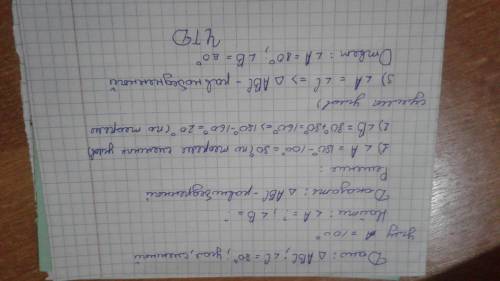 Дано: △ABC; ∠C = 80°, угол, смежный
углу A = 100°
Найти: ∠A = ?, ∠B = ?
Доказать: △ABC - равнобедренный
Решение:
1) ∠A = 180° - 100° = 80° (по теореме смежных углов)
2) ∠B = 80° + 80° = 160° => 180° - 160° = 20° (по теореме
сумма углов)
3) ∠A = ∠C => △ABC - равнобедренный
Ответ: ∠A = 80°, ∠B = 20°
ЧТД